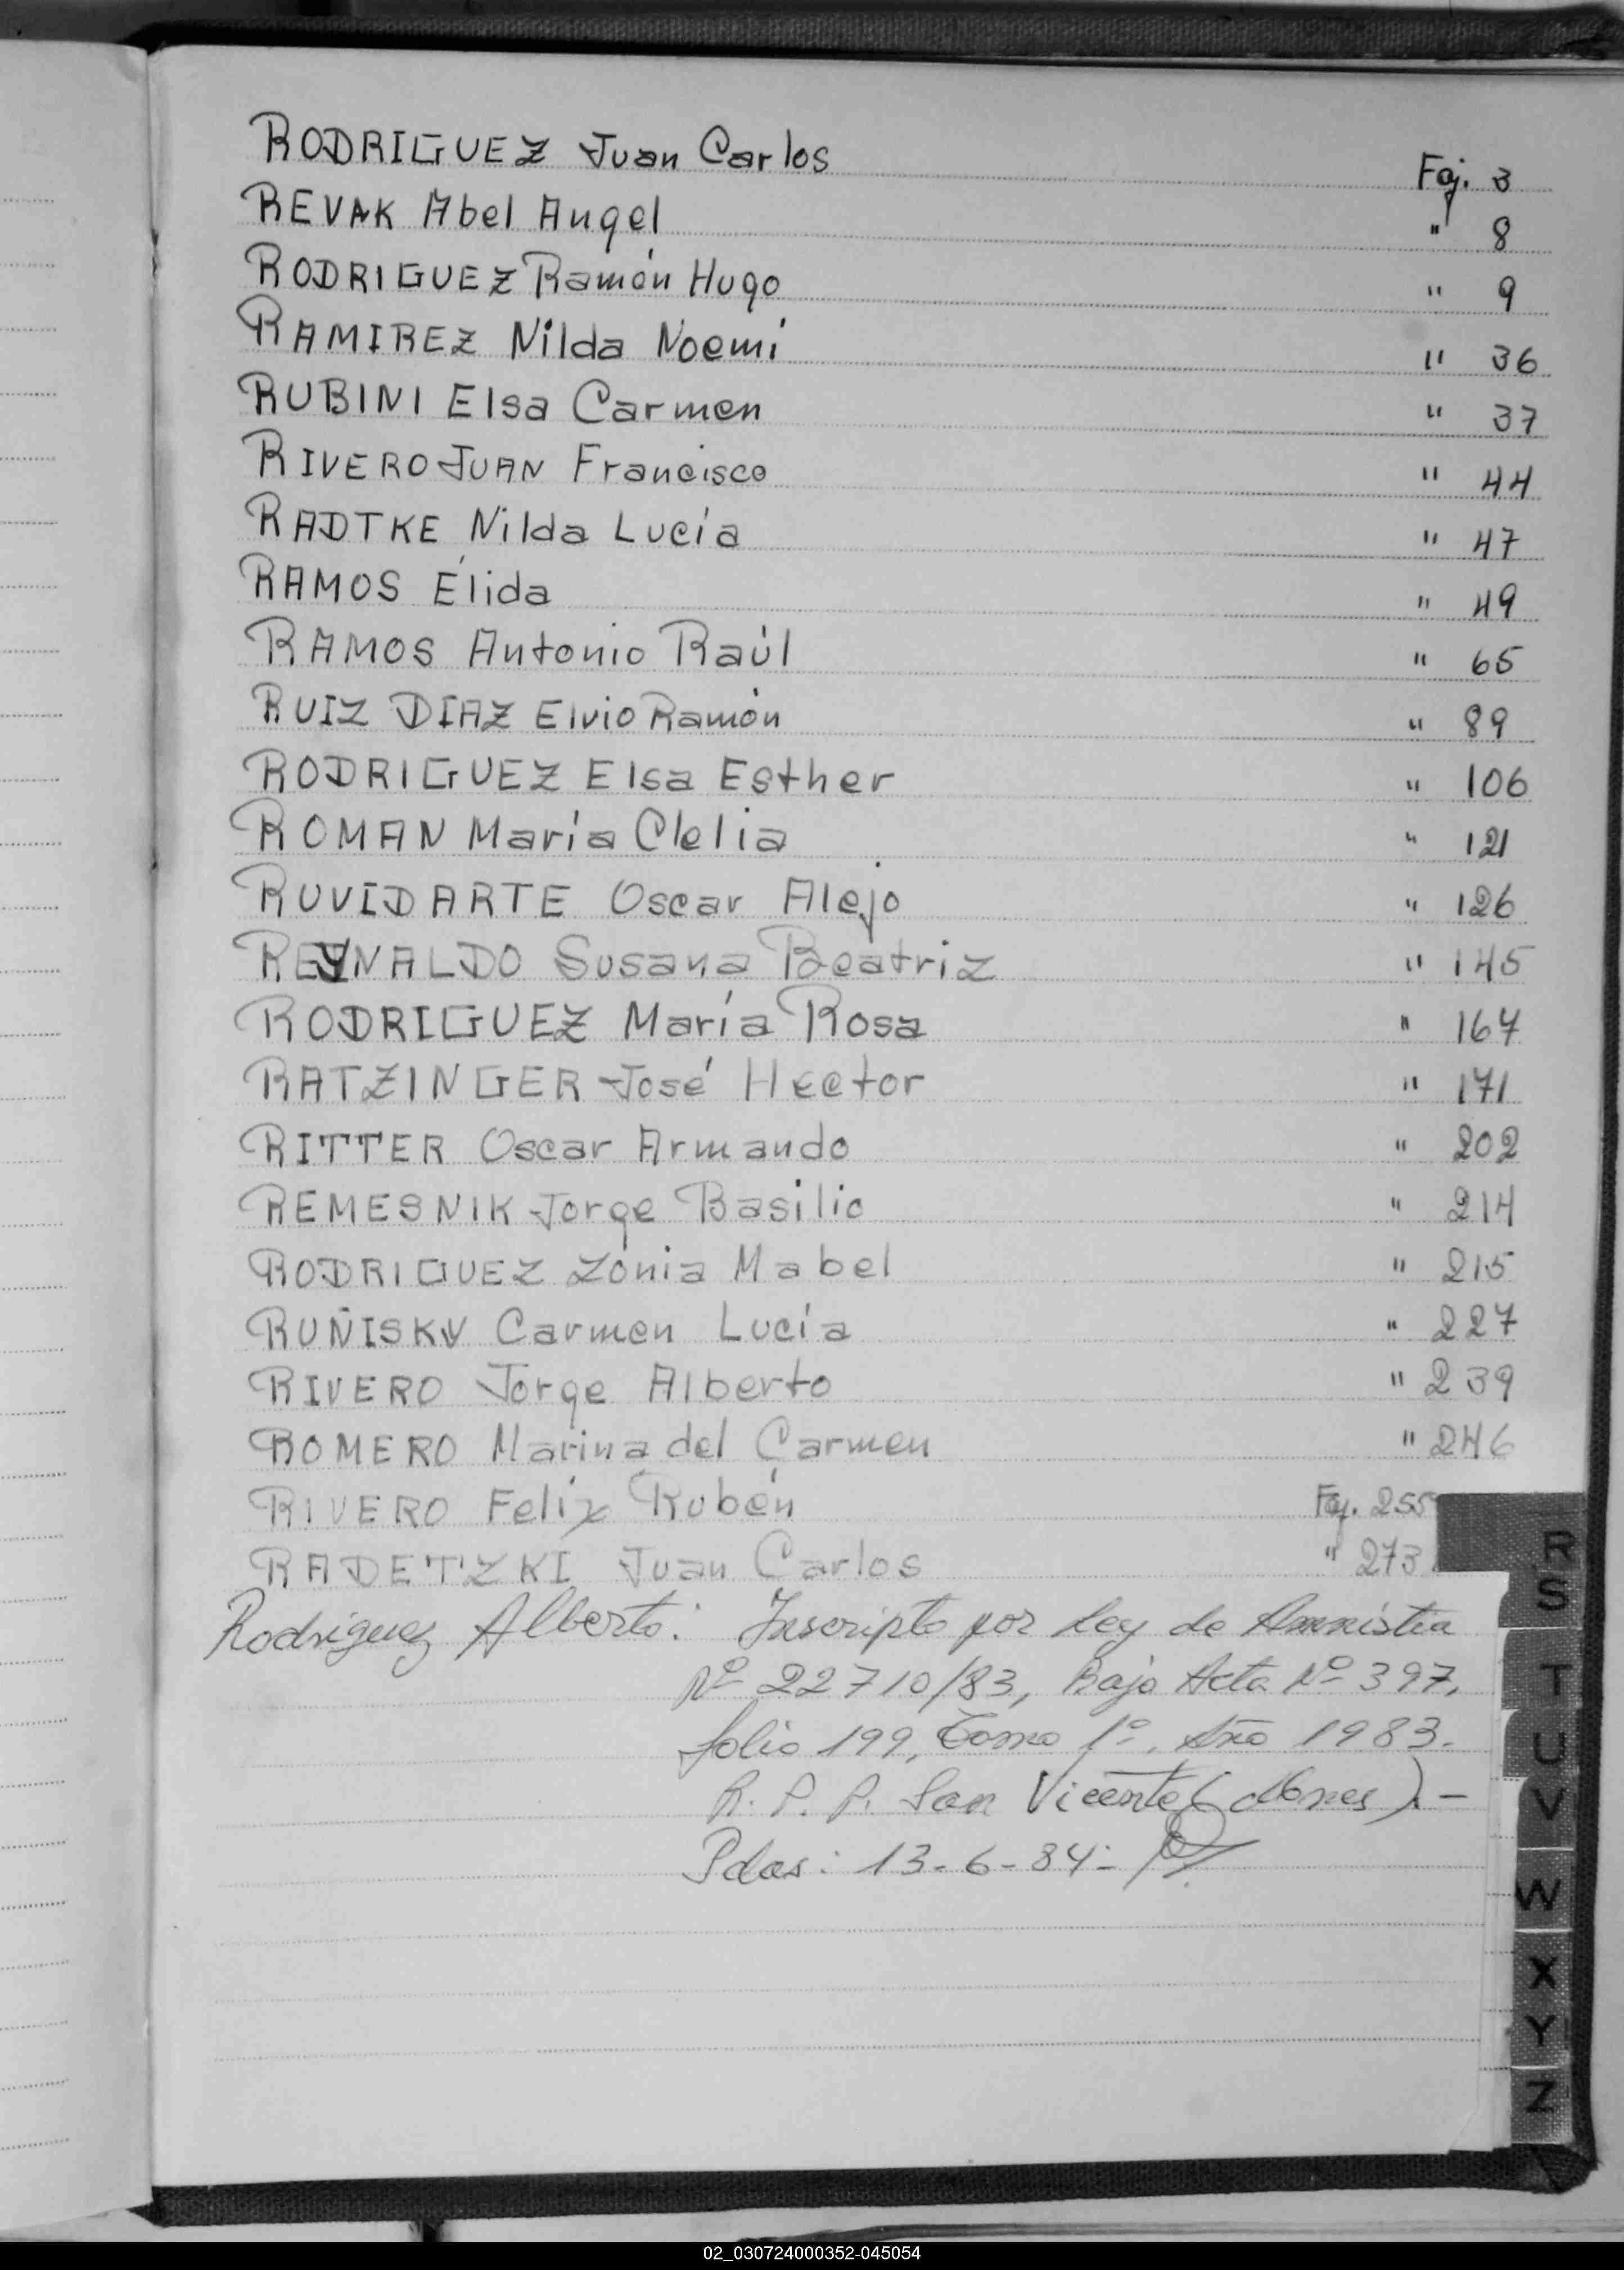 RODRIGUEZ Juan Carlos Foj. 3
REVAK Abel Angel " 8
RODRIGUEZ Ramón Hugo " 9
RAMIREZ Nilda Noemí " 36
RUBINI Elsa Carmen " 37
RIVERO JUAN Francisco " 44
RADTKE Nilda Lucía " 47
RAMOS Élida " 49
RAMOS Antonio Raúl " 65
RUIZ DIAZ Elvio Ramón " 89
RODRIGUEZ Elsa Esther " 106
ROMAN María Clelia " 121
RUVIDARTE Oscar Alejo " 126
REYNALDO Susana Beatriz " 145
RODRIGUEZ María Rosa " 167
RATZINGER José Hector " 171
RITTER Oscar Armando " 202
REMESNIK Jorge Basilio " 214
RODRIGUEZ Zonia Mabel " 215
RUÑISKY Carmen Lucía " 227
RIVERO Jorge Alberto " 239
ROMERO Marina del Carmen " 246
RIVERO Felix Rubén Foj. 255
RADETZKI Juan Carlos " 273
Rodriguez Alberto: Inscripto por Ley de Amnistia
Nº 22710/83, Bajo Acta Nº 397,
folio 199, Tomo 1º, Año 1983.
R. P. P. San Vicente (Mnes). -
Pdas: 13-6-84-
R
S
T
U
V
W
X
Y
Z
02_030724000352-045054